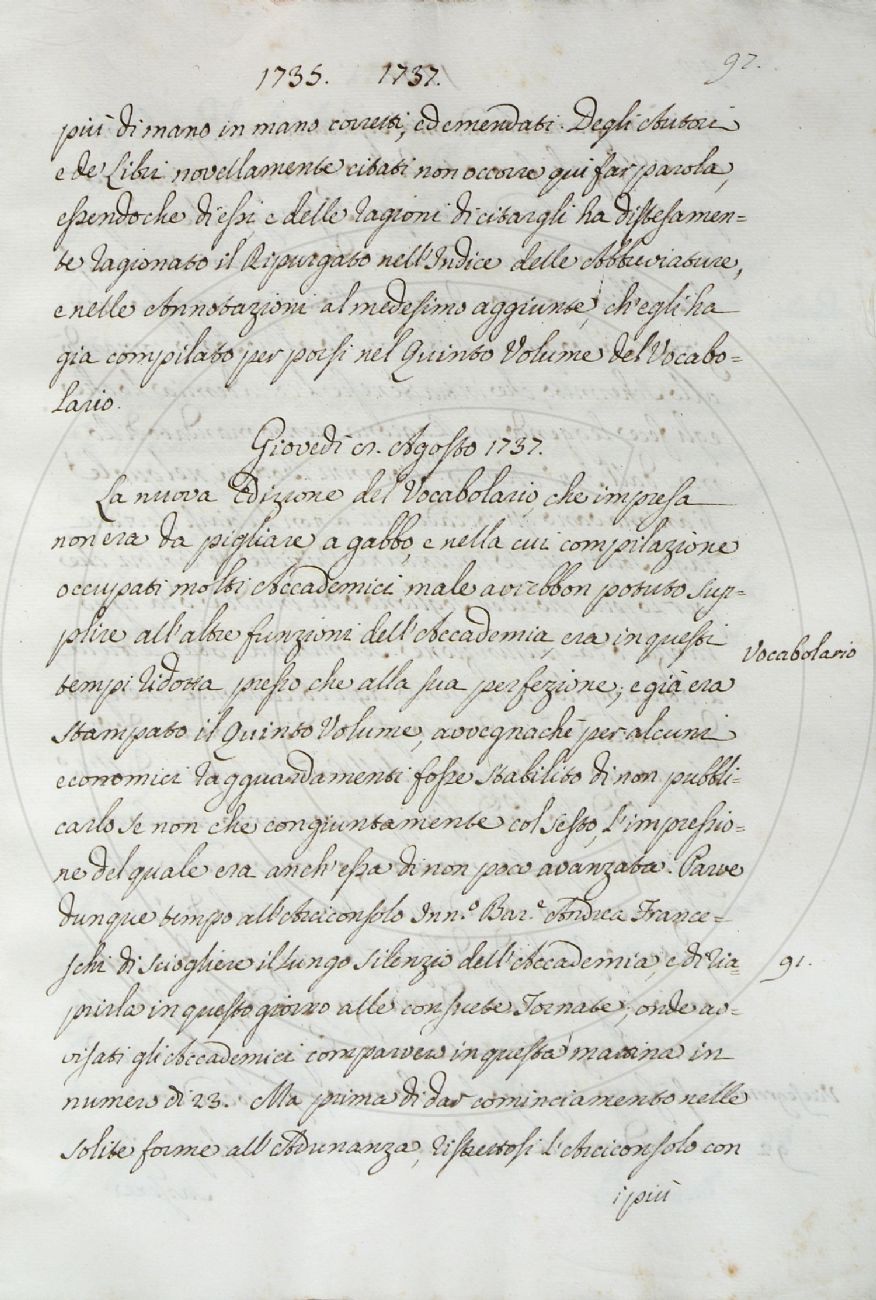 97.
1735. 1737.
più di mano in mano corretti, ed emendati. Degli Autori
e de' Libri novellamente citati non occorre qui far parola,
essendoche di essi, e delle ragioni di citargli ha distesamen=
te ragionato il Ripurgato nell'Indice delle Abbreviature,
e nelle Annotazioni al medesimo aggiunte, ch'egli ha
gia compilato per porsi nel Quinto Volume del Vocabo=
lario.
Giovedì Agosto 1737.
La nuova Edizione del Vocabolario che impresa
non era da pigliare a gabbo, e nella cui compilazione
occupati molti Accademici male avrebbon potuto sup=
plire all'altre funzioni dell'Accademia, era in questi
Vocabolario
tempi ridotta presso che alla sua perfezione, e già era
stampato il Quinto Volume, avvegnachè per alcuni
economici ragguardamenti fosse stabilito di non pubbli=
carlo se non che congiuntamente col Sesto, l'impressio=
ne del quale era anch'essa di non poco avanzata. Parve
dunque tempo all'Arciconsolo Inn.º Bar.e Andrea France=
schi di sciogliere il lungo silenzio dell'Accademia, e di ria=
91.
prirla in questo giorno alle consuete Tornate; onde av=
visati gli Accademici comparvero in questa mattina in
numero di 23. Ma prima di dar cominciamento nelle
solite forme all'Adunanza, ristrettosi l'Arciconsolo con
i più